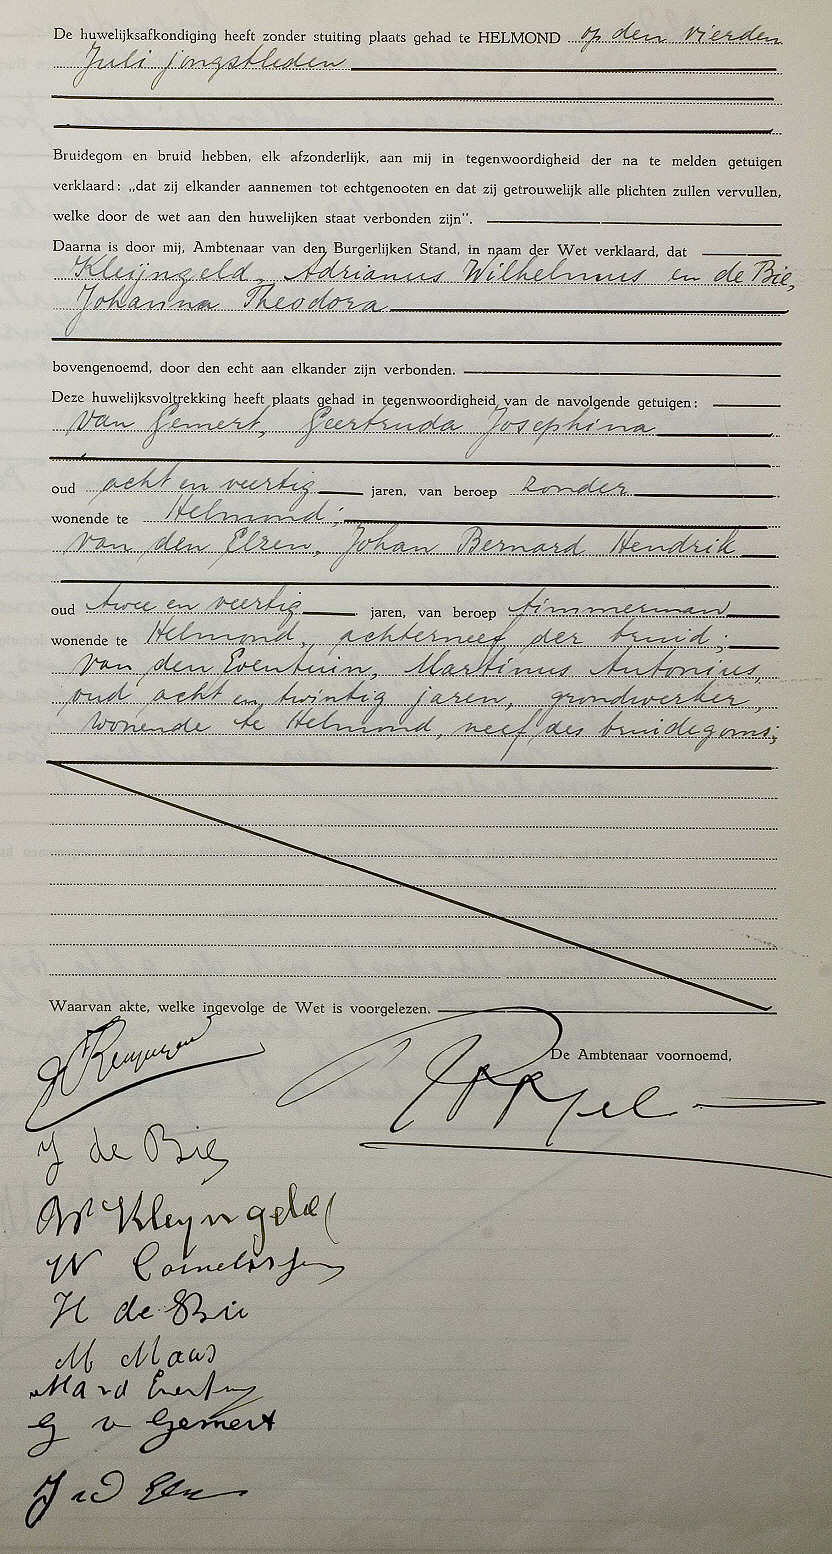 De huwelijksafkondiging heeft zonder stuiting plaats gehad te HELMOND op den vierden
Juli jongstleden
Bruidegom en bruid hebben, elk afzonderlijk, aan mij in tegenwoordigheid der na te melden getuigen
verklaard: „dat zij elkander aannemen tot echtgenooten en dat zij getrouwelijk alle plichten zullen vervullen,
welke door de wet aan den huwelijken staat verbonden zijn".
Daarna is door mij, Ambtenaar van den Burgerlijken Stand, in naam der Wet verklaard, dat
Kleijngeld, Adrianus Wilhelmus en de Bie,
Johanna Theodora
bovengenoemd, door den echt aan elkander zijn verbonden.
Deze huwelijksvoltrekking heeft plaats gehad in tegenwoordigheid van de navolgende getuigen:
van Gemert, Geertruda Josephina
oud acht en veertig jaren, van beroep zonder
wonende te Helmond;
van den Elzen, Johan Bernard Hendrik
oud twee en veertig jaren, van beroep timmerman
wonende te Helmond, achterneef der bruid;
van den Eventuin, Martinus Antonius,
oud acht en twintig jaren, grondwerker,
wonende te Helmond, neef des bruidegoms;
Waarvan akte, welke ingevolge de Wet is voorgelezen.
De Ambtenaar voornoemd,
J de Bie
W Kleyngeld
W Cornelissen
H de Bie
M Maas
G v Gemert
J v d